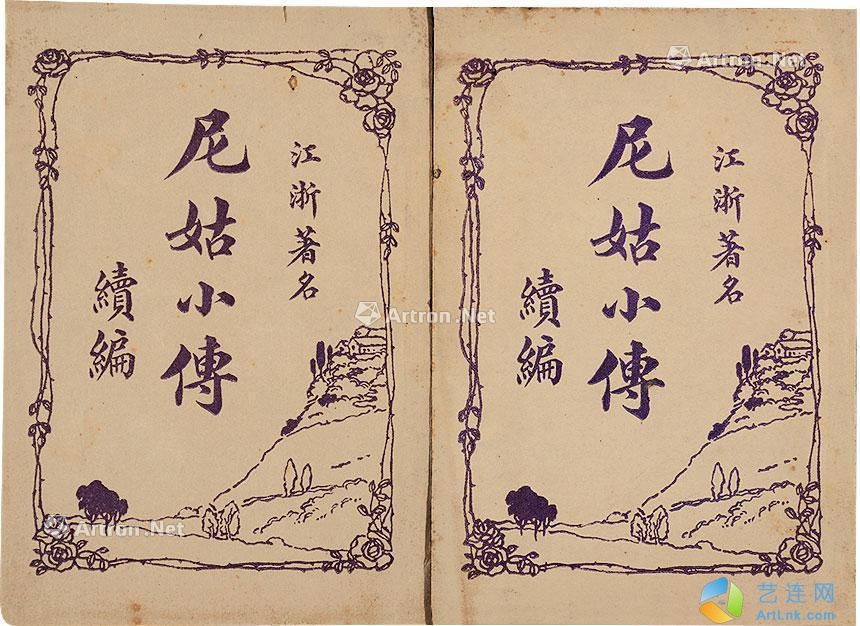 江浙著名
尼姑小傳
續編
江浙著名
尼姑小傳
續編
Artron.Net
Artron.Net
Artron.Net
艺连网
ArtLnk.com